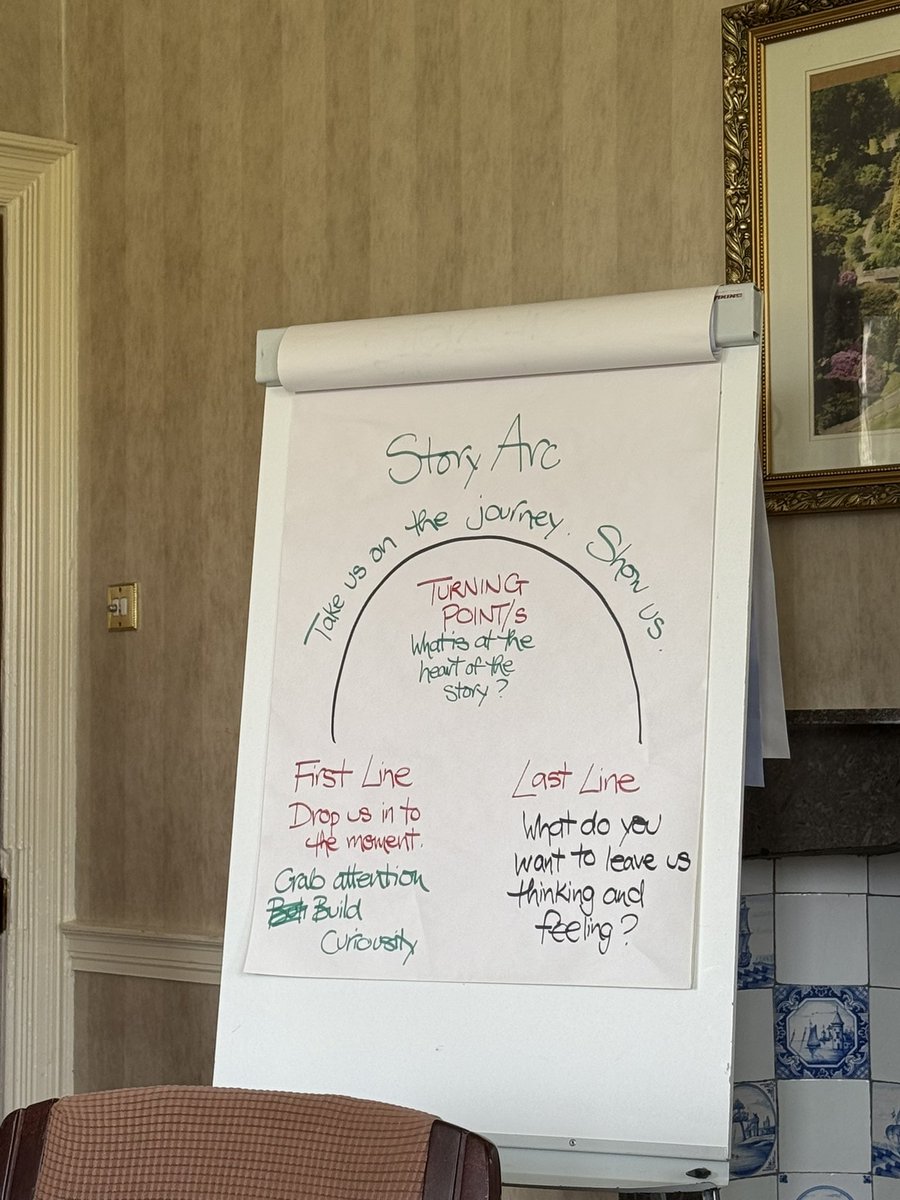 Story Arc
Take us on the journey. Show us.
TURNING
POINT/s
What is at the
heart of the
story?
First Line
Drop us in to
the moment.
Grab attention
Build
Curiousity
Last Line
What do you
want to leave us
thinking and
feeling?